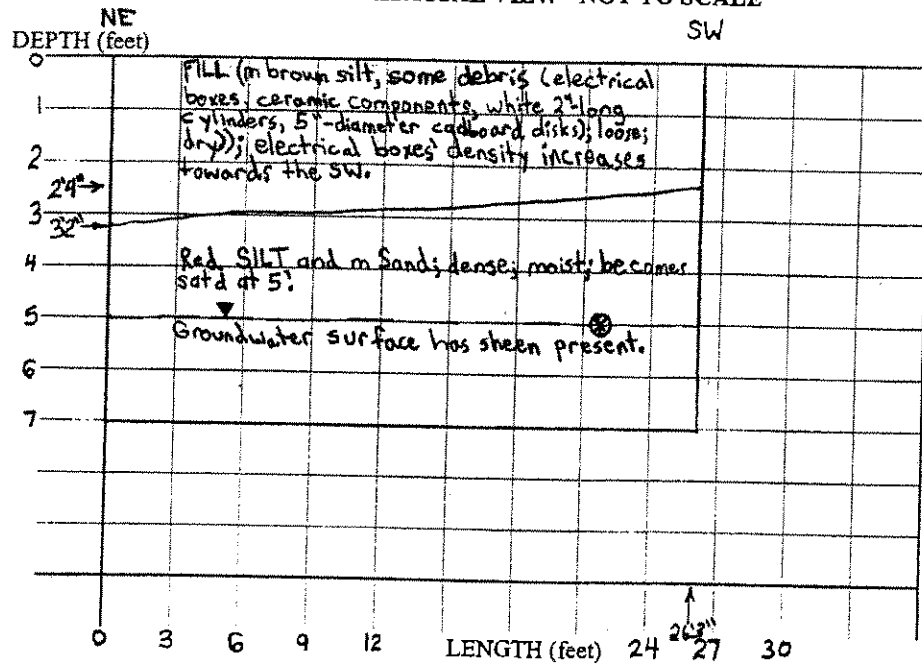 VIEW - NOT TO SCALE
NE
SW
DEPTH (feet)
0
FILL (m brown silt, some debris (electrical
boxes, ceramic components, white 2"-long
1
cylinders, 5"-diameter cadboard disks); loose;
dry)); electrical boxes' density increases
2
towards the SW.
3
4
Red SILT and m Sand; dense; moist; becomes
sat'd at 5'.
5
Groundwater surface has sheen present.
6
7
0 3 6 9 12 LENGTH (feet) 24 27 30